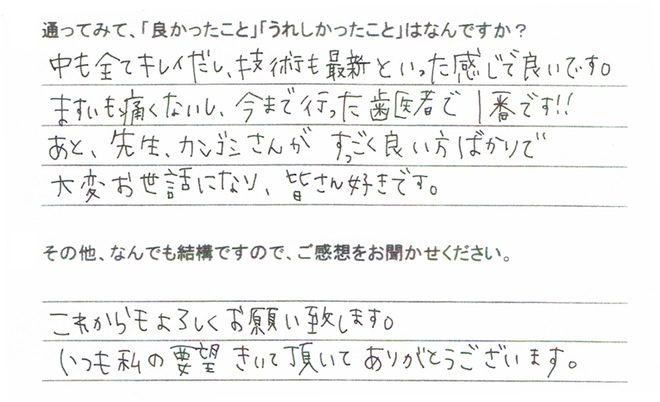 通ってみて、「良かったこと」「うれしかったこと」はなんですか？
中も全てキレイだし、技術も最新といった感じで良いです。
ますいも痛くないし、今まで行った歯医者で1番です!!
あと、先生、カンゴシさんが すっごく良い方ばかりで
大変お世話になり、皆さん好きです。
その他、なんでも結構ですので、ご感想をお聞かせください。
これからもよろしくお願い致します。
いつも私の要望きいて頂いてありがとうございます。